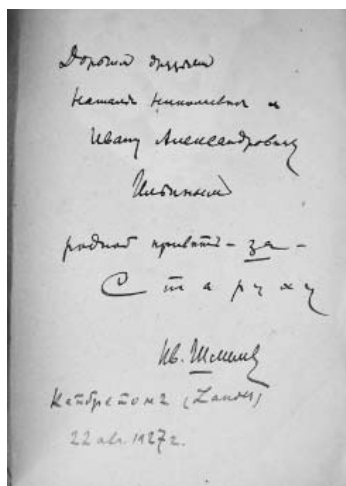 Дорогим друзьям
Наталье Николаевне и
Ивану Александровичу
Ильиным
родной привѣтъ – за –
Старуху
Ив. Шмелев
Капбретонъ (Landes)
22 авг. 1927 г.